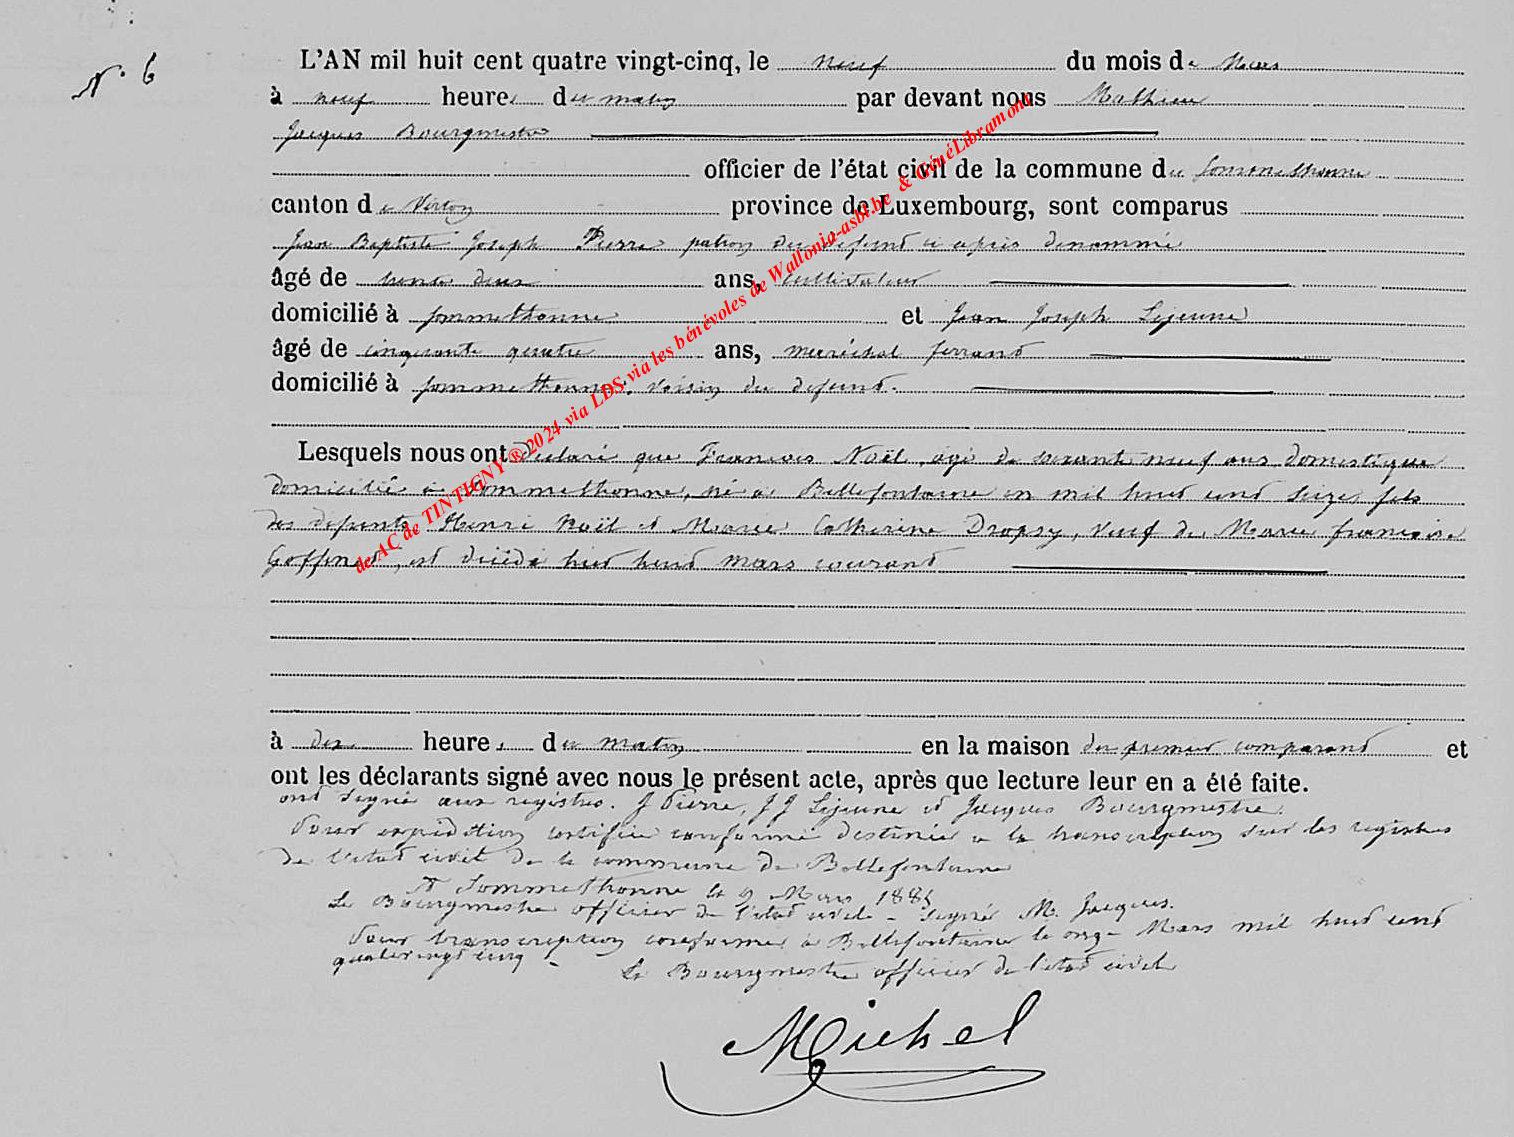 N° 6
L'AN mil huit cent quatre vingt-cinq, le neuf du mois de Mars
à neuf heures du matin par devant nous Mathieu
Jacques Bourgmestre
officier de l'état civil de la commune de Sommethonne
canton de Virton province de Luxembourg, sont comparus
Jean Baptiste Joseph Pierre patron du défunt ci après dénommé
âgé de trente deux ans, cultivateur
domicilié à Sommethonne et Jean Joseph Lejeune
âgé de cinquante quatre ans, maréchal ferrant
domicilié à Sommethonne, voisin du défunt.
Lesquels nous ont déclaré que François Noël, âgé de soixante neuf ans, domestique
domicilié à Sommethonne, né à Bellefontaine en mil huit cent seize, fils
des défunts Henri Noël et Marie Catherine Dropsy, veuf de Marie françoise
Goffinet, est décédé hier huit mars courant
à dix heures du matin en la maison du premier comparant et
ont les déclarants signé avec nous le présent acte, après que lecture leur en a été faite.
ont signé aux registres. J Pierre, J J Lejeune et Jacques Bourgmestre.
Pour expédition certifiée conforme destinée à la transcription sur les registres
de l'état civil de la commune de Bellefontaine
A Sommethonne le 9 Mars 1885
Le Bourgmestre officier de l'état civil - signé M. Jacques.
Pour transcription conforme à Bellefontaine le onze Mars mil huit cent
quatre vingt cinq - Le Bourgmestre officier de l'état civil
Michel
de AC de TINTIGNY ® 2024 via LDS via les bénévoles de Wallonia-asbl.be & GénéLibramont